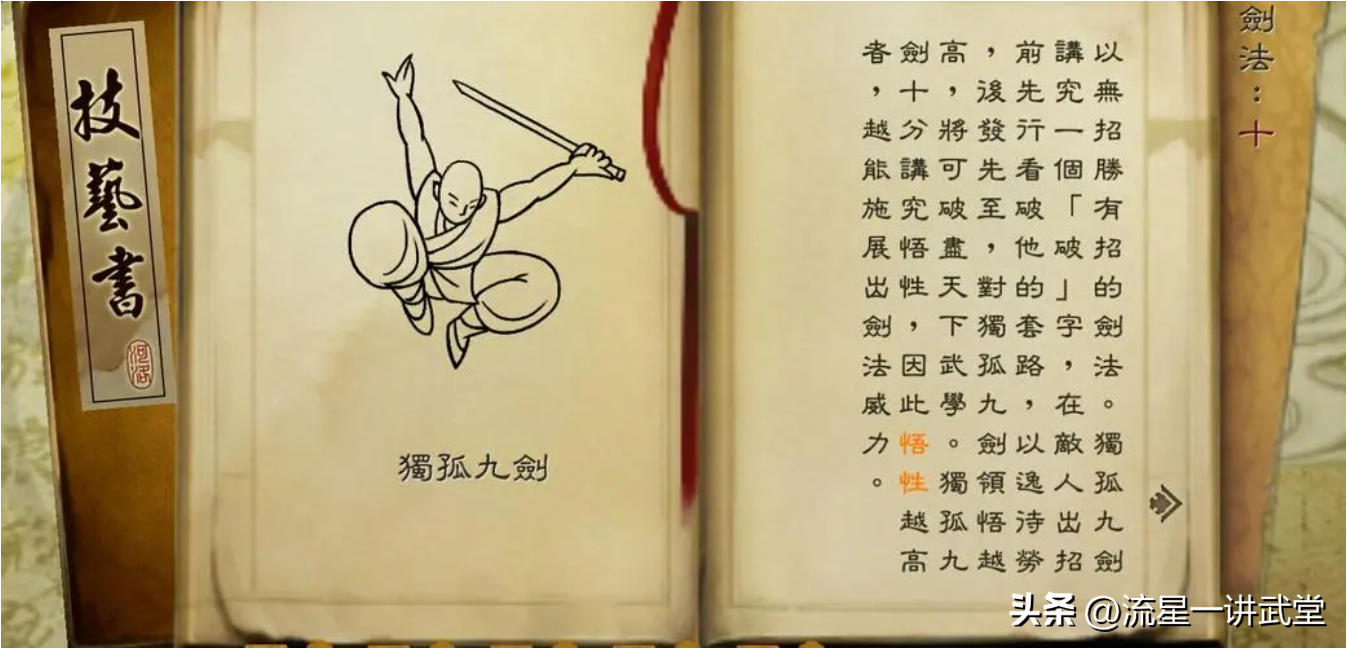 劍法：十
以無招勝有招的劍法。獨孤九劍
講究一個「破」字，在敵人出招
前先行看破他的套路，以逸待勞
，後發先至，對獨孤九劍領悟越
高，將可破盡天下武學。獨孤九
劍十分講究悟性，因此悟性越高
者，越能施展出劍法威力。
獨孤九劍
技藝書
河洛
头条 @流星一讲武堂